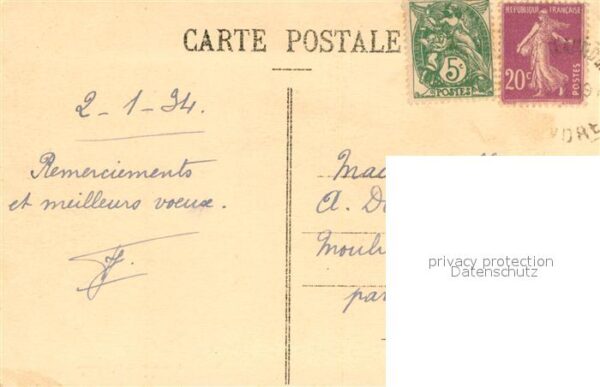 CARTE POSTALE
5c
POSTES
REPUBLIQUE FRANÇAISE
20c
POSTES
2-1-34.
Remerciements
et meilleurs voeux.
A.
par
privacy protection
Datenschutz